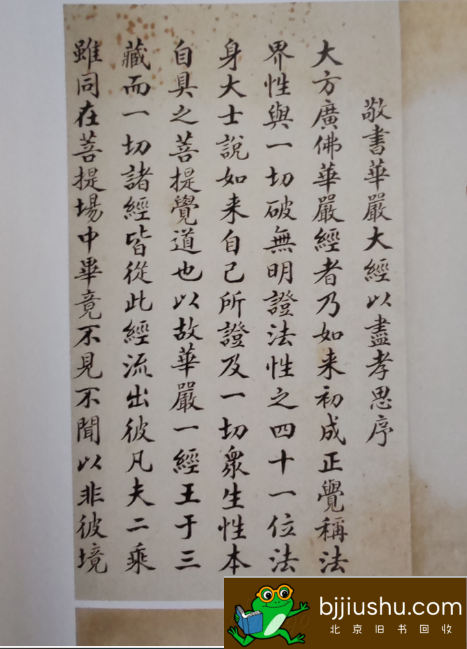 敬書華嚴大經以盡孝思序
大方廣佛華嚴經者乃如来初成正覺稱法
界性與一切破無明證法性之四十一位法
身大士說如来自己所證及一切衆生性本
自具之菩提覺道也以故華嚴一經王于三
藏而一切諸經皆從此經流出彼凡夫二乘
雖同在菩提場中畢竟不見不聞以非彼境
bjjiushu.com
北京旧书回收